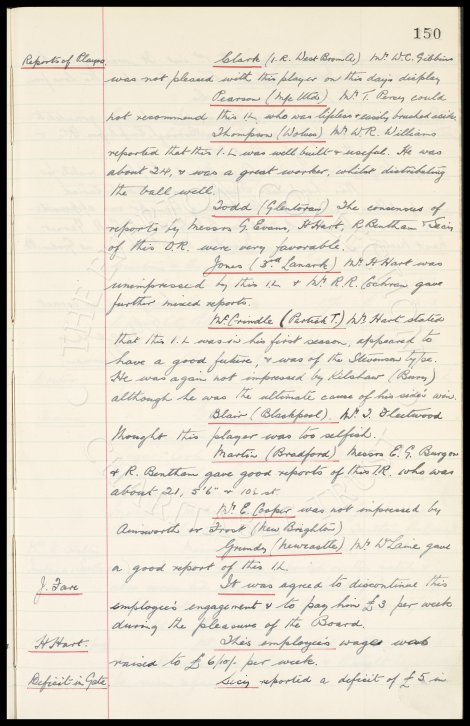 150
Reports of Players. Clark (I.R. West Brom A) Mr W.C. Gibbins
was not pleased with this player on this days display
Pearson (N/c Utd) Mr T. Percy could
not recommend this I.L. who was lifeless & easily brushed aside.
Thompson (Wolves) Mr W.R. Williams
reported that this I.L. was well built & useful. He was
about 24, & was a great worker, whilst distributing
the ball well.
Todd (Glentoran) The consensus of
reports by Messrs G. Evans, H Hart, R Bentham & Secy
of this O.R. were very favorable.
Jones (3rd Lanark) Mr H Hart was
unimpressed by this I.L. & Mr R.R. Cochran gave
further mixed reports.
McCrindle (Partick T.) Mr Hart stated
that this I.L. was in his first season, appeared to
have a good future, & was of the Stevenson type.
He was again not impressed by Kilshaw (Bury)
although he was the ultimate cause of his side's win.
Blair (Blackpool). Mr I. Fleetwood
thought this player was too selfish.
Martin (Bradford) Messrs E.G. Burgon
& R. Bentham gave good reports of this I.R. who was
about 21, 5'6" & 10½ st.
Mr E. Cooper was not impressed by
Ainsworth or Frost (New Brighton)
Grundy (Newcastle) Mr W Laine gave
a good report of this I.L.
J. Fare It was agreed to discontinue this
employee's engagement & to pay him £3 per week
during the pleasure of the Board.
H Hart. This employee's wages was
raised to £6/10/- per week.
Deficit in Gate. Secy reported a deficit of £5 in